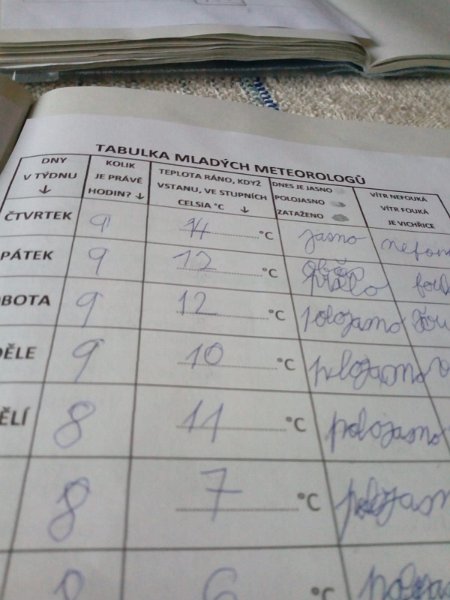 TABULKA MLADÝCH METEOROLOGŮ
DNY V TÝDNU ↓ KOLIK JE PRÁVĚ HODIN? ↓ TEPLOTA RÁNO, KDYŽ VSTANU, VE STUPNÍCH CELSIA °C ↓ DNES JE JASNO POLOJASNO ZATAŽENO VÍTR NEFOUKÁ VÍTR FOUKÁ JE VICHŘICE
ČTVRTEK 9 14 °C jasno
PÁTEK 9 12 °C
OBOTA 9 12 °C polojasno
DĚLE 9 10 °C polojasno
ĚLÍ 8 11 °C polojasno
8 7 °C
6 °C